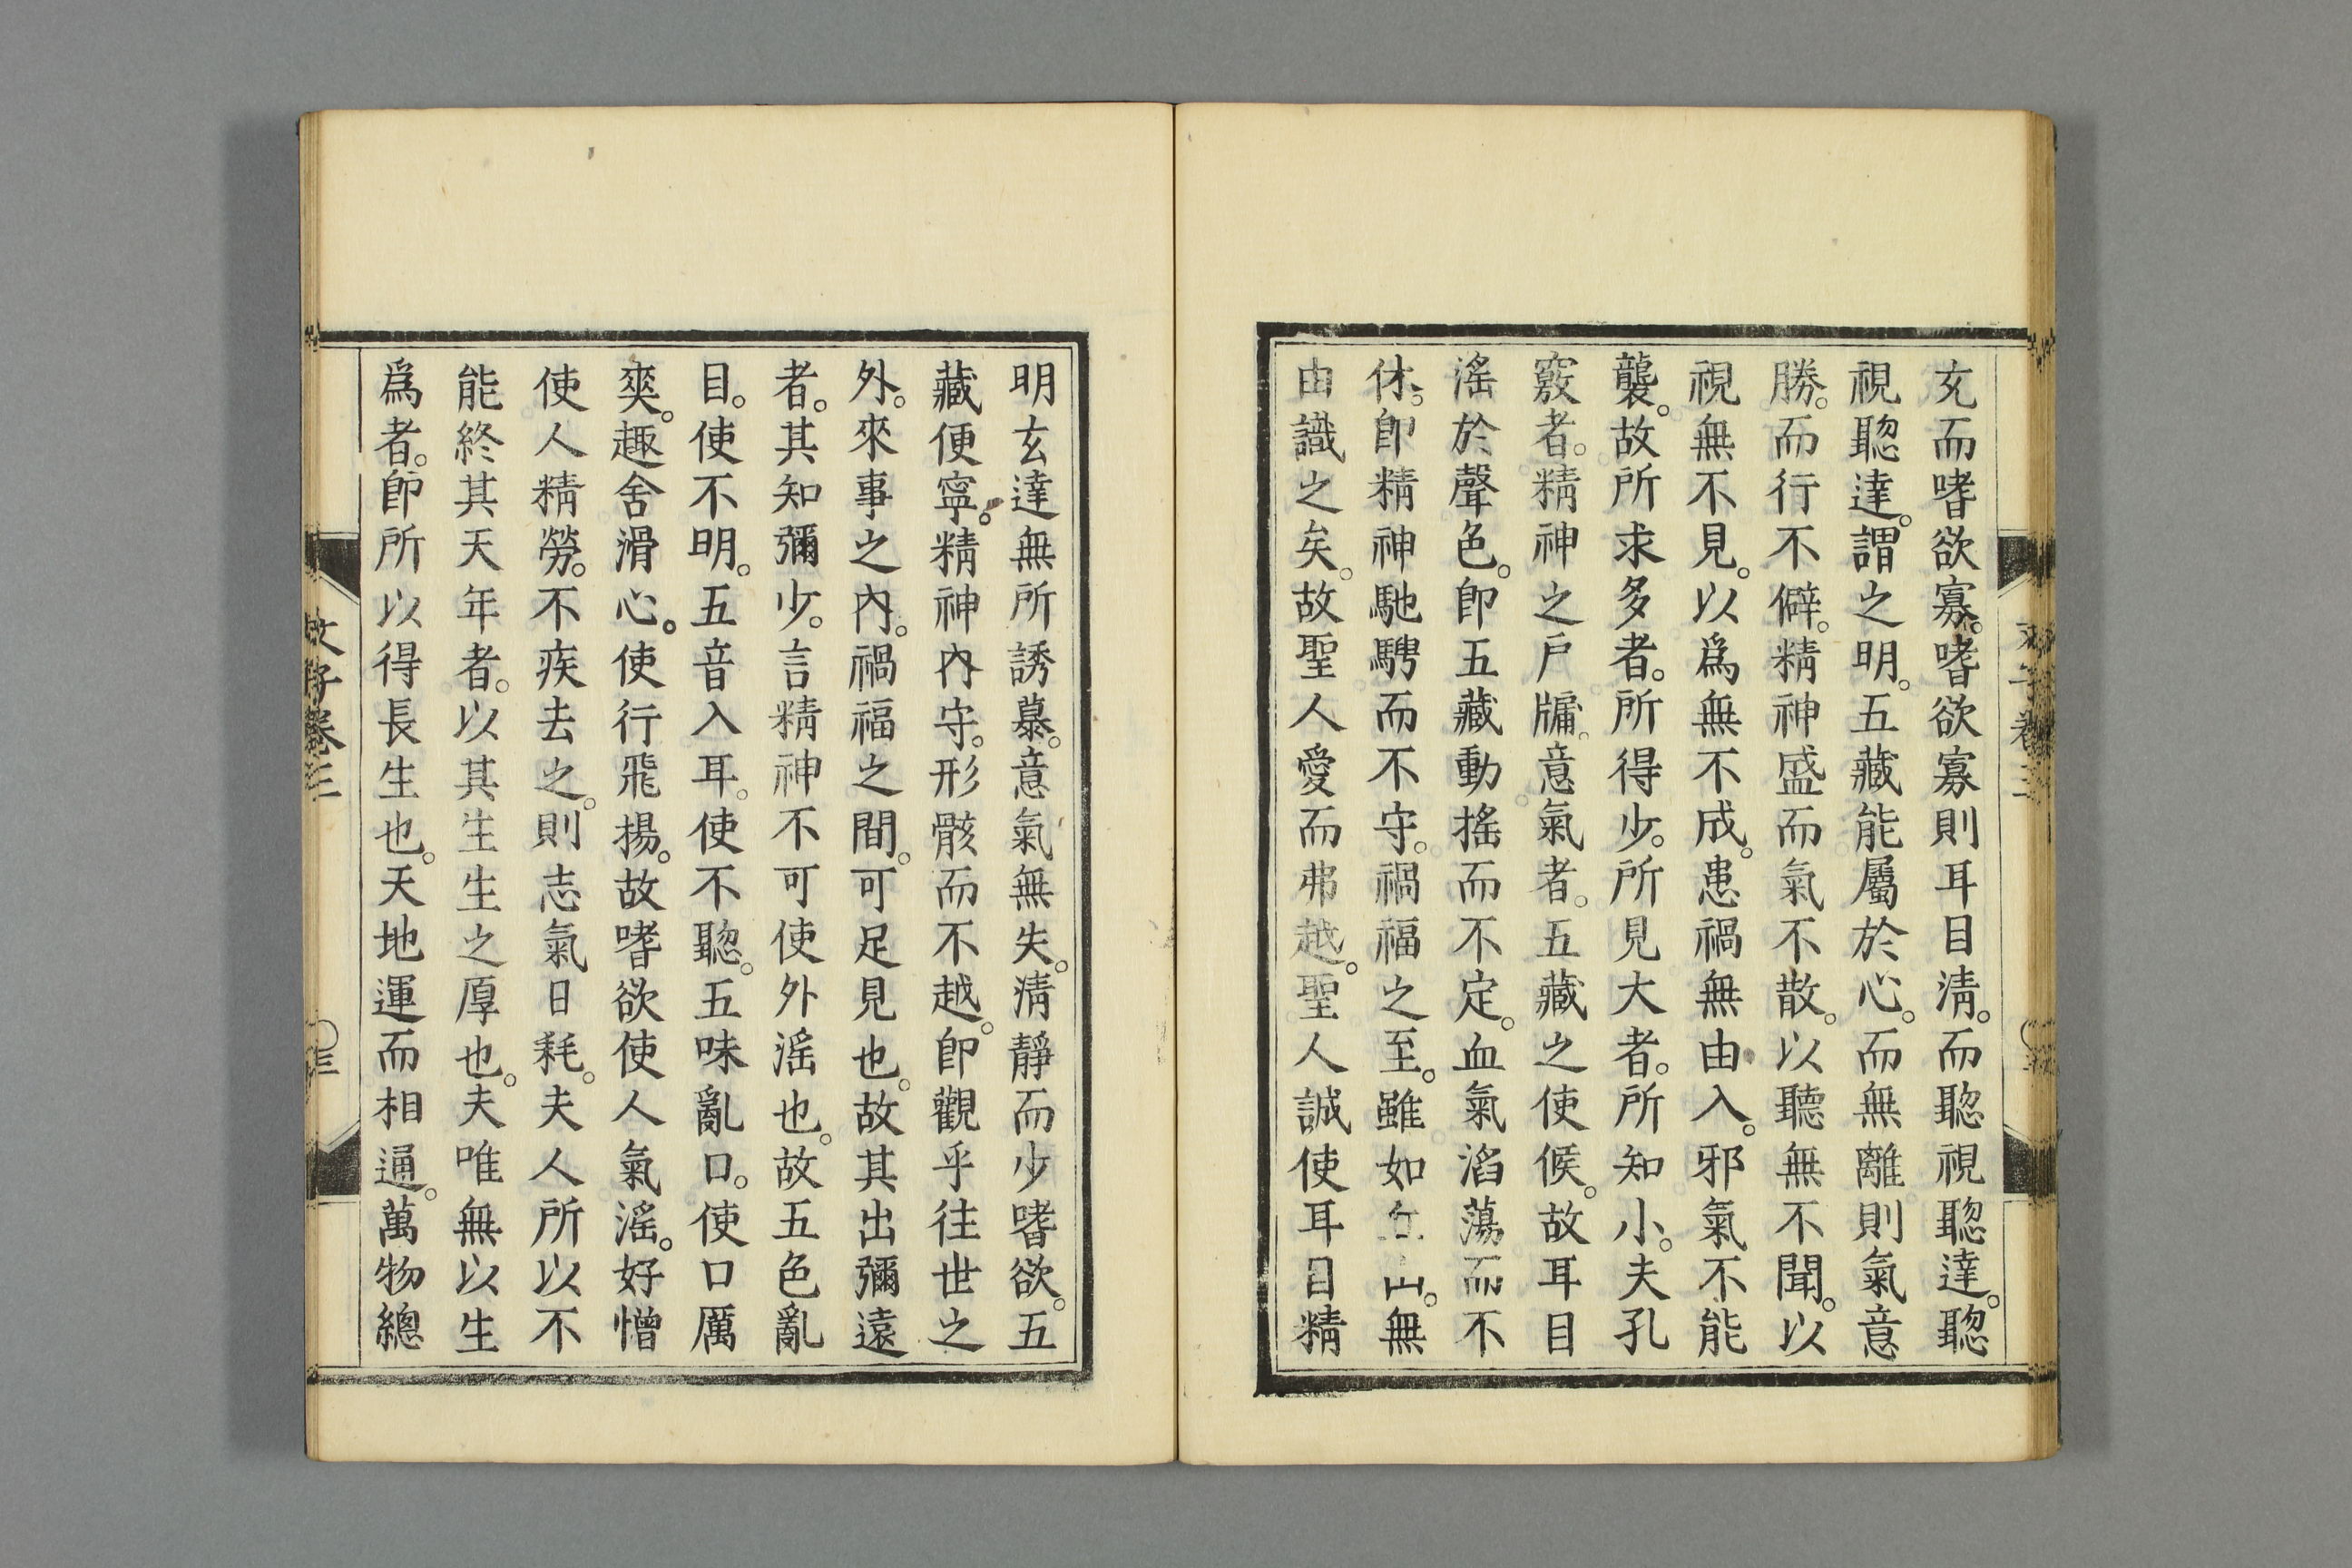 充而嗜欲寡。嗜欲寡則耳目淸。而聦視聦達。聦
視聦達。謂之明。五藏能屬於心。而無離則氣意
勝。而行不僻。精神盛而氣不散。以聽無不聞。以
視無不見。以爲無不成。患禍無由入。邪氣不能
襲。故所求多者。所得少。所見大者。所知小。夫孔
竅者。精神之戶牖。意氣者。五藏之使候。故耳目
滛於聲色。卽五藏動搖而不定。血氣滔蕩而不
休。卽精神馳騁而不守。禍福之至。雖如山。無
由識之矣。故聖人愛而弗越。聖人誠使耳目精
明玄達無所誘慕。意氣無失。淸靜而少嗜欲。五
藏便寧。精神內守。形骸而不越。卽觀乎往世之
外。來事之內。禍福之間。可足見也。故其出彌遠
者。其知彌少。言精神不可使外滛也。故五色亂
目。使不明。五音入耳。使不聦。五味亂口。使口厲
爽。趣舍滑心。使行飛揚。故嗜欲使人氣滛。好憎
使人精勞。不疾去之。則志氣日耗。夫人所以不
能終其天年者。以其生生之厚也。夫唯無以生
爲者。卽所以得長生也。天地運而相通。萬物總
文子卷三
〇三